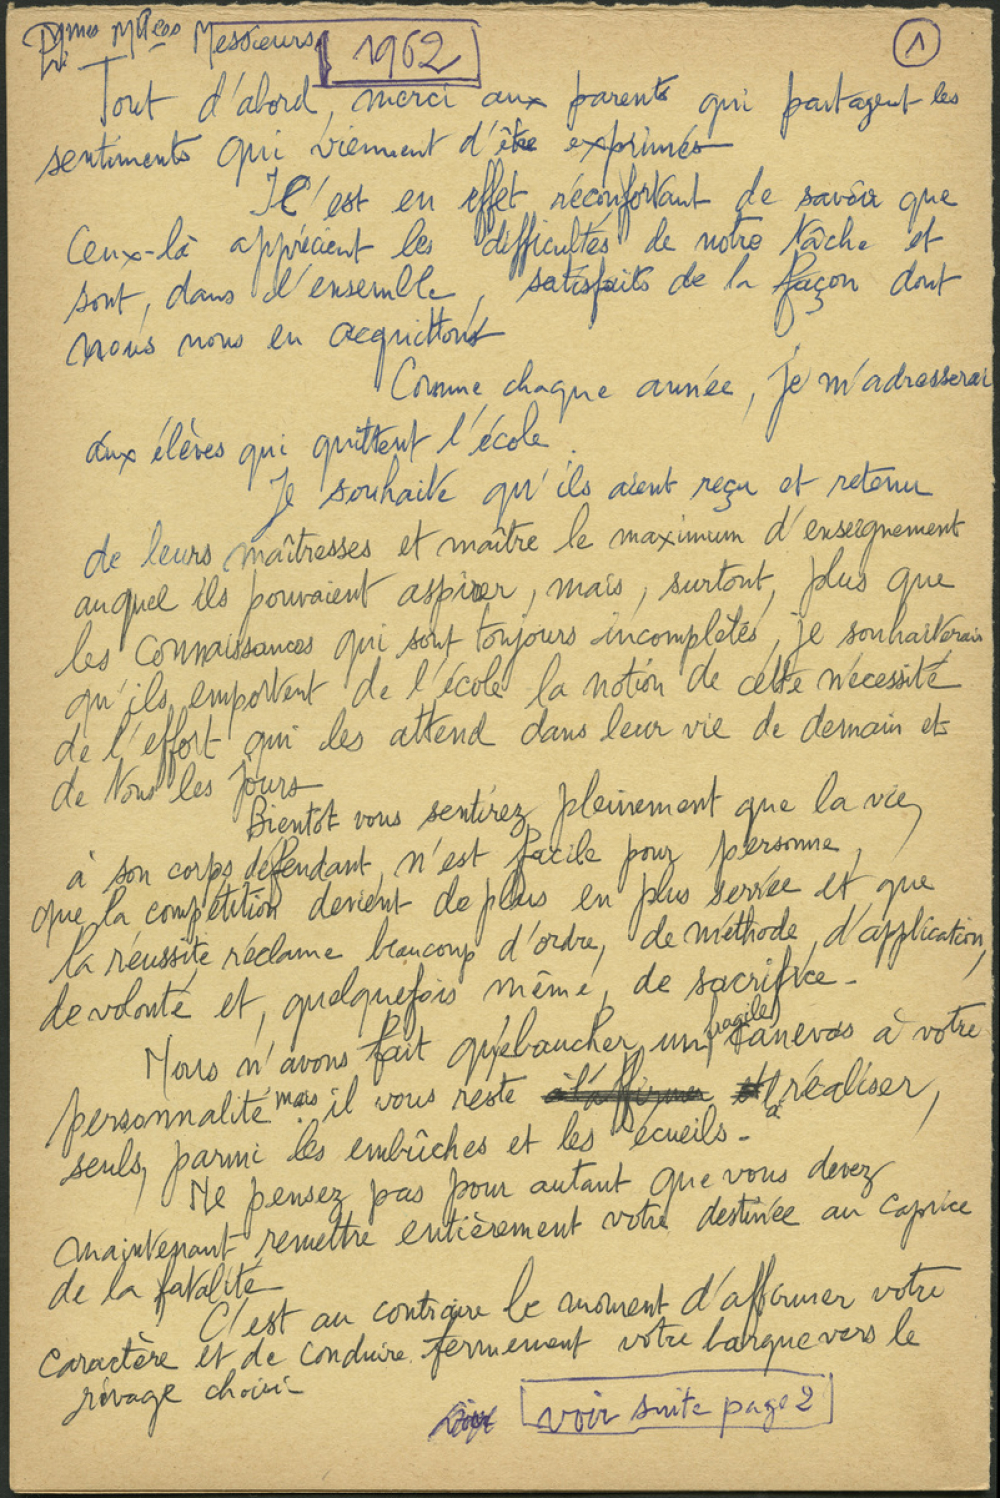 Mmes Mlles Messieurs, 1962 1
Tout d'abord, merci aux parents qui partagent les
sentiments qui viennent d'être exprimés
Il est en effet réconfortant de savoir que
ceux-là apprécient les difficultés de notre tâche et
sont, dans l'ensemble, satisfaits de la façon dont
nous nous en acquittons
Comme chaque année, je m'adresserai
aux élèves qui quittent l'école.
Je souhaite qu'ils aient reçu et retenu
de leurs maîtresses et maître le maximum d'enseignement
auquel ils pouvaient aspirer, mais, surtout, plus que
les connaissances qui sont toujours incomplètes, je souhaiterais
qu'ils emportent de l'école la notion de cette nécessité
de l'effort qui les attend dans leur vie de demain et
de tous les jours
Bientôt vous sentirez pleinement que la vie,
à son corps défendant, n'est facile pour personne,
que la compétition devient de plus en plus serrée et que
la réussite réclame beaucoup d'ordre, de méthode, d'application,
de volonté et, quelquefois même, de sacrifice -
Nous n'avons fait qu'ébaucher un fragile canevas à votre
personnalité mais il vous reste à réaliser,
seuls, parmi les embûches et les écueils -
Ne pensez pas pour autant que vous devez
maintenant remettre entièrement votre destinée au caprice
de la fatalité
C'est au contraire le moment d'affirmer votre
caractère et de conduire fermement votre barque vers le
rivage choisi -
voir suite page 2